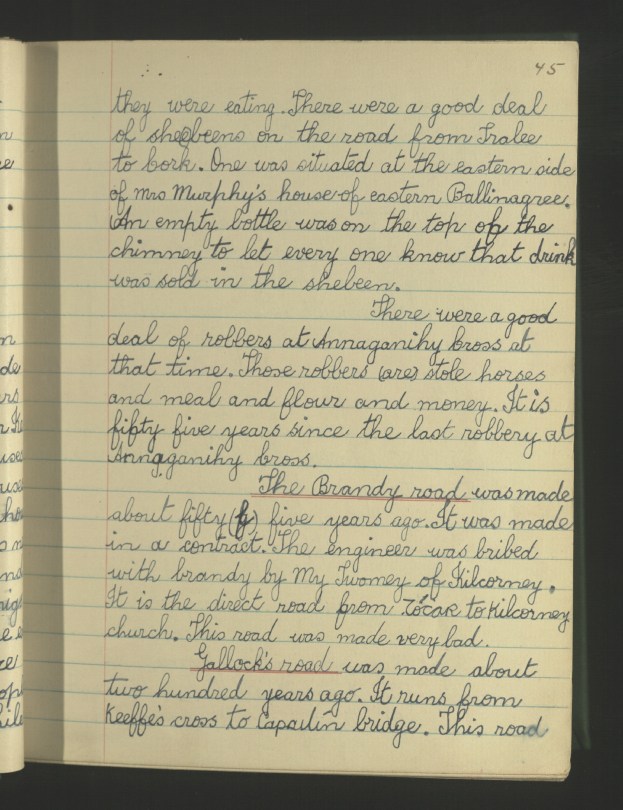 45
they were eating. There were a good deal
of shebeens on the road from Tralee
to Cork. One was situated at the eastern side
of mrs Murphy's house of eastern Ballinagree.
An empty bottle was on the top of the
chimney to let every one know that drink
was sold in the shebeen.
There were a good
deal of robbers at Annaganihy Cross at
that time. Those robbers (ares) stole horses
and meal and flour and money. It is
fifty five years since the last robbery at
Annaganihy Cross.
The Brandy road was made
about fifty (f) five years ago. It was made
in a contract. The engineer was bribed
with brandy by My Twomey of Kilcorney.
It is the direct road from to Kilcorney
church. This road was made very bad.
Gallock's road was made about
two hundred years ago. It runs from
Keeffe's cross to Capailín bridge. This road